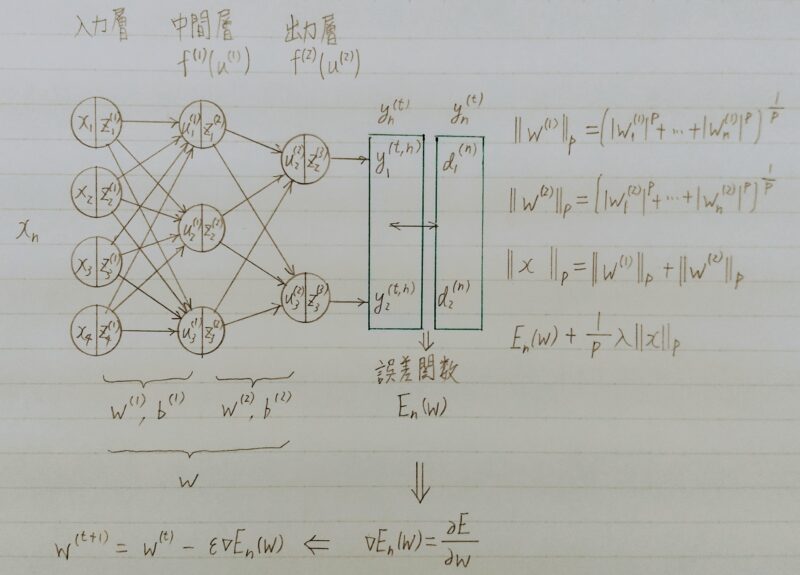 入力層 中間層 出力層
f^(1)(u^(1)) f^(2)(u^(2))
y_n^(t) y_n^(t)
x_1 z_1^(1) u_1^(1) z_1^(2)
u_2^(2) z_2^(3) y_1^(t,n) d_1^(n)
x_2 z_2^(1)
x_n u_2^(1) z_2^(2)
x_3 z_3^(1)
u_3^(2) z_3^(3) y_2^(t,n) d_2^(n)
x_4 z_4^(1) u_3^(1) z_3^(2)
‖W^(1)‖_p = (|W_1^(1)|^p + … + |W_n^(1)|^p)^(1/p)
‖W^(2)‖_p = (|W_1^(2)|^p + … + |W_n^(2)|^p)^(1/p)
‖x‖_p = ‖W^(1)‖_p + ‖W^(2)‖_p
E_n(w) + 1/p λ‖x‖_p
⇓
誤差関数
E_n(w)
w^(1), b^(1) w^(2), b^(2)
w
⇓
w^(t+1) = w^(t) − ε∇E_n(w) ⇐ ∇E_n(w) = ∂E/∂w